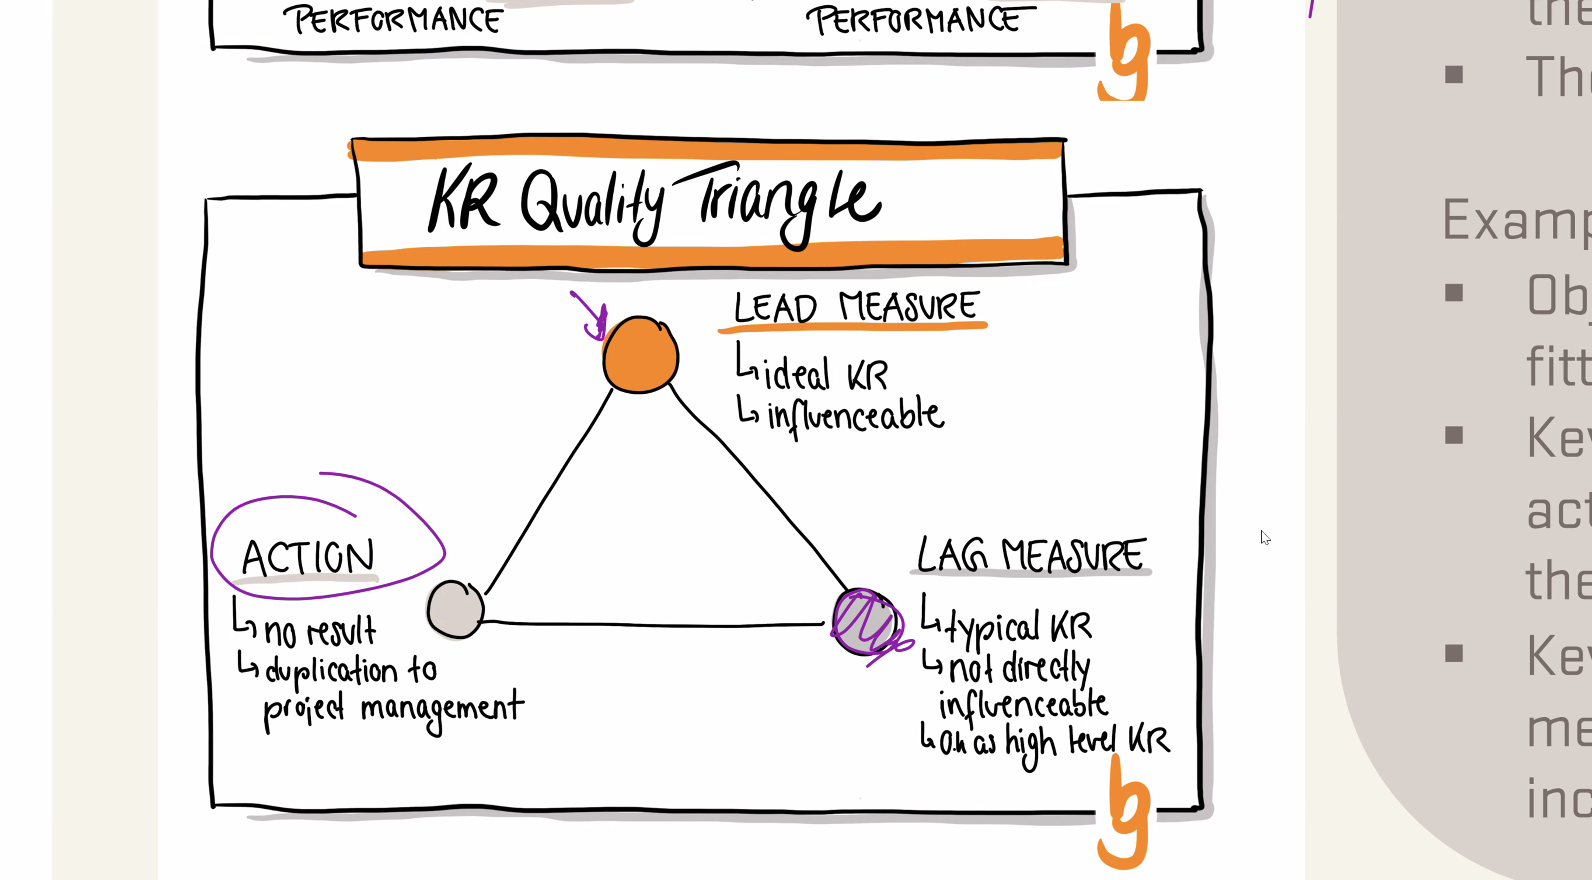 PERFORMANCE
PERFORMANCE
bg
KR Quality Triangle
LEAD MEASURE
ideal KR
influenceable
ACTION
no result
duplication to
project management
LAG MEASURE
typical KR
not directly
influenceable
o.k as high level KR
bg
the
The
Examp
Ob
fitt
Key
act
the
Key
me
inc